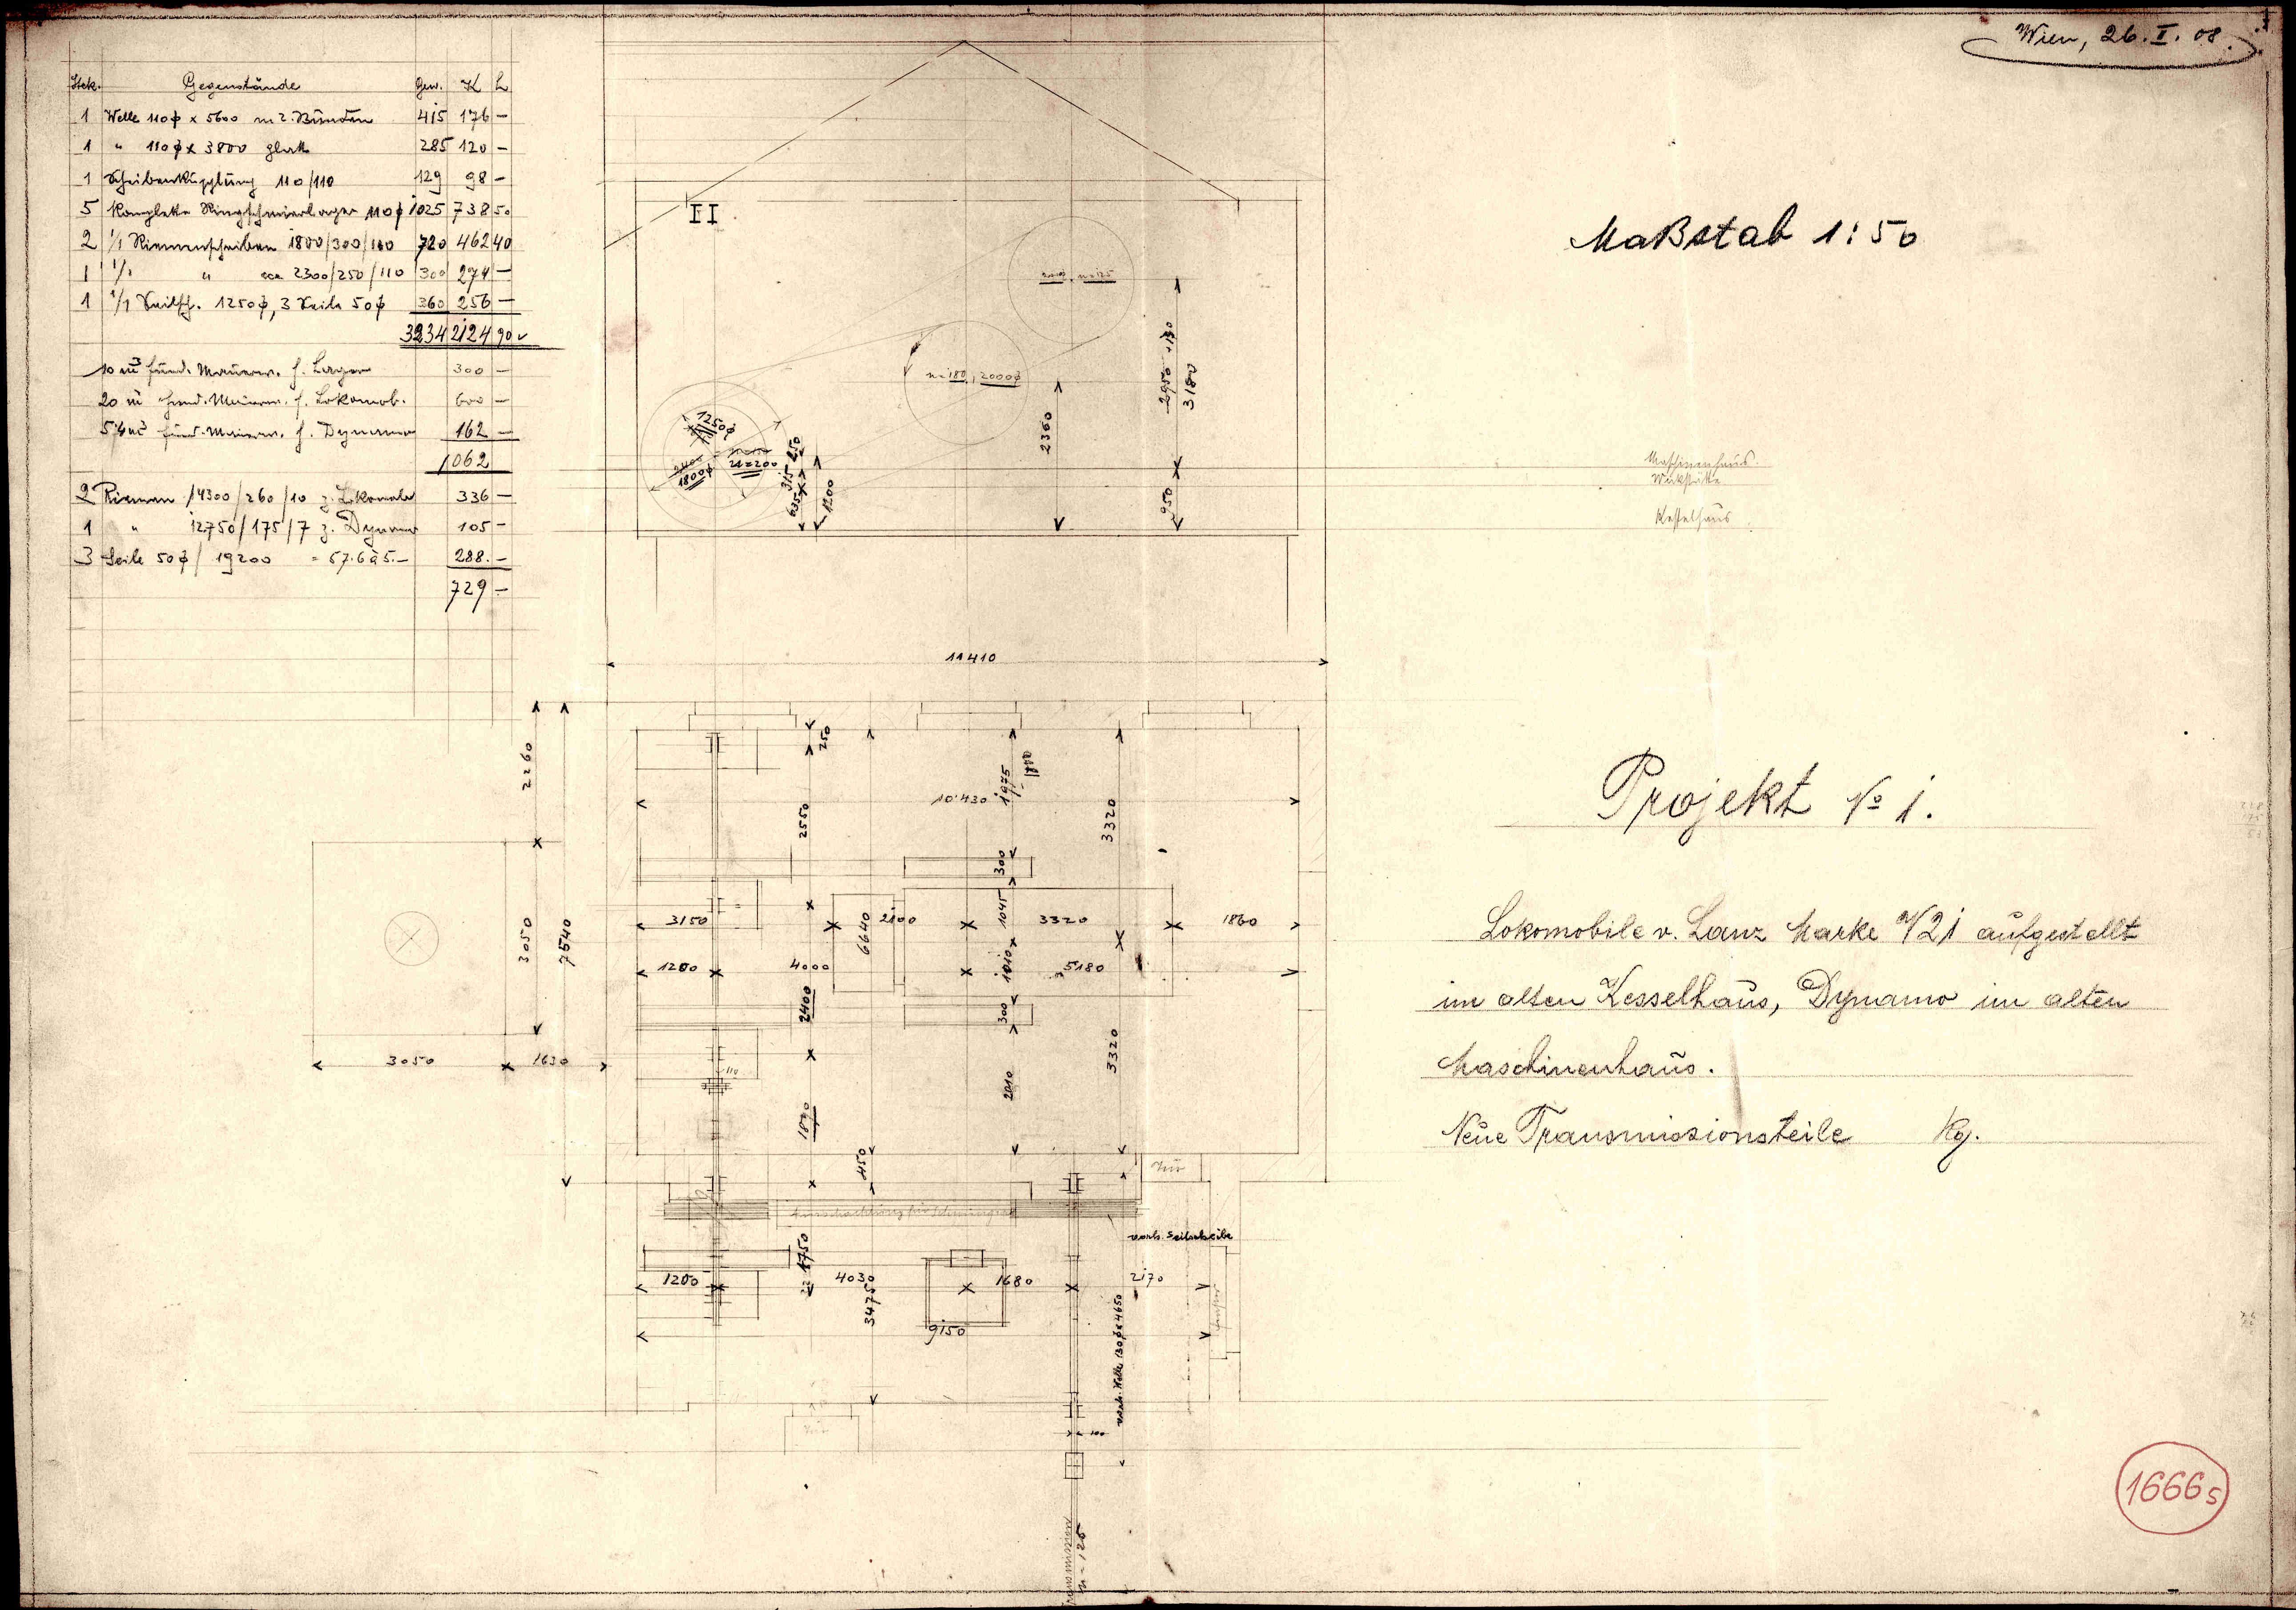 Wien, 26. I. 08.
Stck. Gegenstände Gew. K h
1 Welle 110ϕ x 5600 m 2 Bunden 415 176 –
1 " 110ϕ x 3800 glatt 285 120 –
1 Scheibenkupplung 110/110 129 98 –
5 komplette Ringschmierlager 110ϕ 1025 738 50
2 1/1 Riemenscheiben 1800/300/110 720 462 40
1 1/1 " 2300/250/110 300 274 –
1 1/1 Seilsch. 1250ϕ, 3 Seile 50ϕ 360 256 –
3234 2124 90
10 m³ fund. Mauerw. f. Lager 300 –
20 m³ fund. Mauerw. f. Lokomob. 600 –
5.4 m³ fund. Mauerw. f. Dynamo 162 –
1062
2 Riemen 14300/260/10 z. Lokomob 336 –
1 " 12750/175/7 z. Dynamo 105 –
3 Seile 50ϕ / 19200 = 57.6 à 5.– 288.–
729 –
II
n=125
n=180, 2000ϕ
1250ϕ
1800ϕ
n=200
250
315
635
1200
2360
2950 + 130
3180
950
Maßstab 1:50
Maschinenhaus.
Werkstätte
Kesselhaus
11410
2260
3050
7540
3050
1630
250
2550
10430
1975
3320
300
3150
6640
2100
1045
3320
1860
1200
4000
1010
5180
2400
300
110
1890
2010
3320
450
Tür
vorh. Seilscheibe
1750
1200
4030
1680
2170
3475
9150
Fenster
vorh. Welle 130ϕ x 4650
100
Tür
Transmission
n = 125
Projekt No 1.
Lokomobile v. Lanz Marke V21 aufgestellt
im alten Kesselhaus, Dynamo im alten
Maschinenhaus.
Neue Transmissionsteile Kg.
1666 5